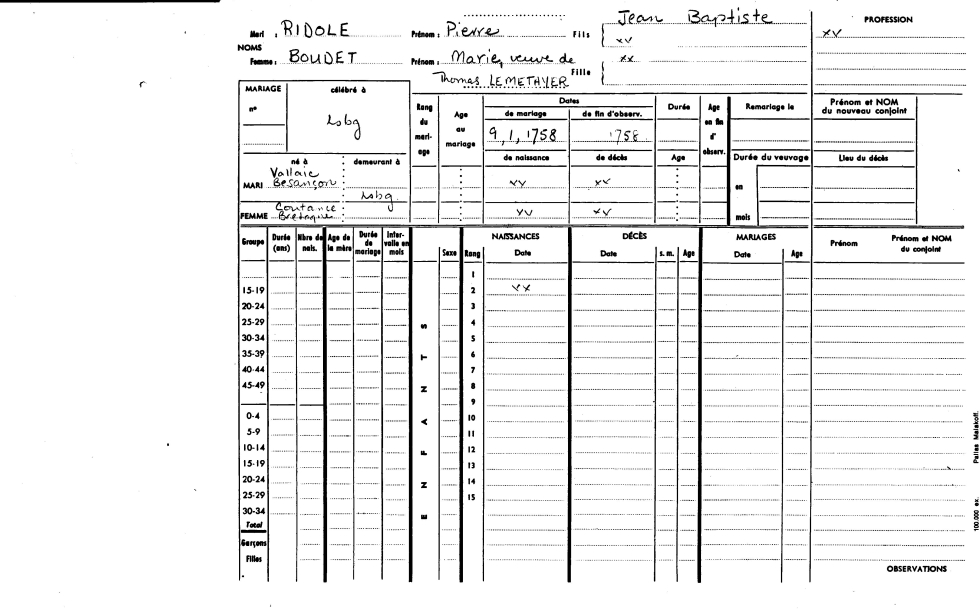 Jean Baptiste
PROFESSION
Mari : RIDOLE Prénom : Pierre Fils { xv xv
NOMS
Femme : BOUDET Prénom : Marie, veuve de Fille { xx
Thomas LEMETHAYER
MARIAGE célébré à
n° Lsbg
Rang du mari-age
Age au mariage
Dates
de mariage de fin d'observ.
9, 1, 1758 1758
de naissance de décès
Durée
Age
Age en fin d' observ.
Remariage le
Durée du veuvage
en
mois
Prénom et NOM du nouveau conjoint
Lieu du décès
né à demeurant à
Vallaie
MARI Besançon
Lsbg
xv xx
Coutance
FEMME Bretagne
xv xx
Groupe Durée (ans) Nbre de nais. Age de la mère Durée de mariage Inter-valle en mois
ENFANTS
Sexe Rang NAISSANCES Date DÉCÈS Date s. m. Age MARIAGES Date Age Prénom Prénom et NOM du conjoint
1
15-19 2 xx
20-24 3
25-29 4
30-34 5
35-39 6
40-44 7
45-49 8
9
0-4 10
5-9 11
10-14 12
15-19 13
20-24 14
25-29 15
30-34
Total
Garçons
Filles
OBSERVATIONS
100.000 ex. Pairies Malakoff.